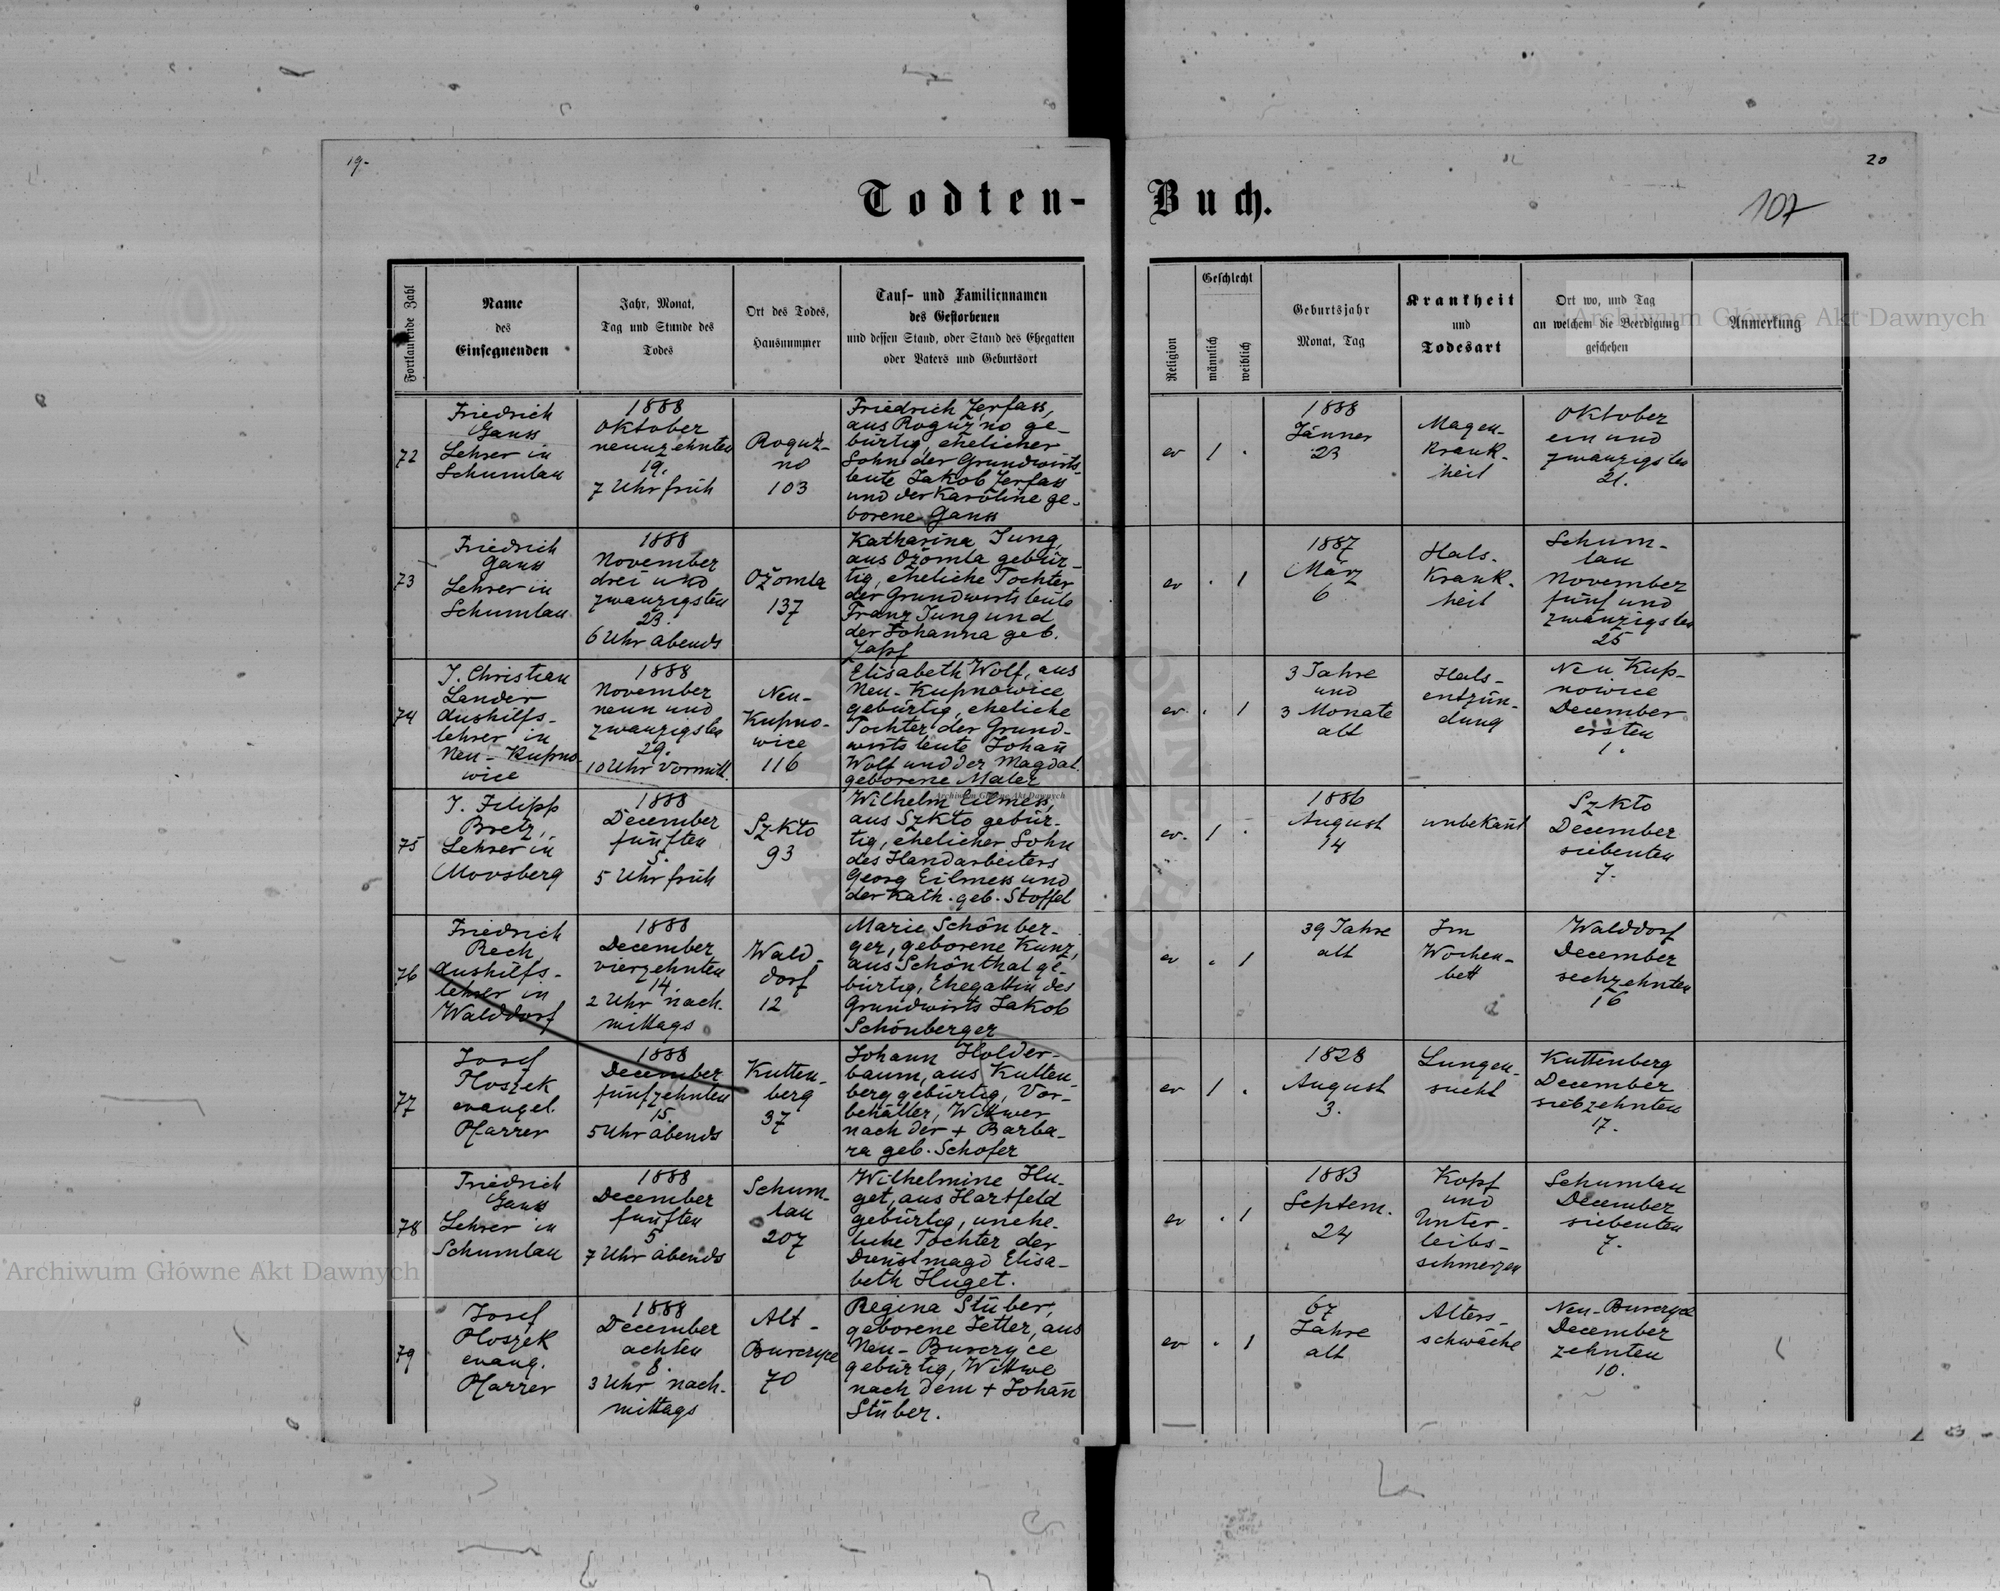 19.
20
Todten-Buch.
107
Fortlaufende Zahl
Name
des
Einsegnenden
Jahr, Monat,
Tag und Stunde des
Todes
Ort des Todes,
Hausnummer
Tauf- und Familiennamen
des Gestorbenen
und dessen Stand, oder Stand des Ehegatten
oder Vaters und Geburtsort
Religion
Geschlecht
männlich
weiblich
Geburtsjahr
Monat, Tag
Krankheit
und
Todesart
Ort wo, und Tag
an welchem die Beerdigung
geschehen
Anmerkung
72
Friedrich
Gauss
Lehrer in
Schumlau
1888
Oktober
neunzehnten
19.
7 Uhr früh
Roguź-
no
103
Friedrich Zerfass,
aus Roguźno ge-
bürtig, ehelicher
Sohn der Grundwirts-
leute Jakob Zerfass
und der Karoline ge-
borene Gauss
ev
1
.
1888
Jänner
23
Magen-
krank-
heit
Oktober
ein und
zwanzigsten
21.
73
Friedrich
Gauss
Lehrer in
Schumlau
1888
November
drei und
zwanzigsten
23.
6 Uhr abends
Ożomla
137
Katharina Jung,
aus Ożomla gebür-
tig, eheliche Tochter
der Grundwirtsleute
Franz Jung und
der Johanna geb.
Zapf
ev
.
1
1887
März
6
Hals-
krank-
heit
Schum-
lau
November
fünf und
zwanzigsten
25
74
J. Christian
Lander
Aushilfs-
lehrer in
Neu-Kupno-
wice
1888
November
neun und
zwanzigsten
29.
10 Uhr Vormitt.
Neu-
Kupno-
wice
116
Elisabeth Wolf, aus
Neu-Kupnowice
gebürtig, eheliche
Tochter der Grund-
wirtsleute Johañ
Wolf und der Magdal.
geborene Maler
ev.
.
1
3 Jahre
und
3 Monate
alt
Hals-
entzün-
dung
Neu Kup-
nowice
December
ersten
1.
75
J. Filipp
Bretz,
Lehrer in
Moosberg
1888
December
fünften
5.
5 Uhr früh
Szkło
93
Wilhelm Eilmess,
aus Szkło gebür-
tig, ehelicher Sohn
des Handarbeiters
Georg Eilmess und
der Kath. geb. Stoffel
ev.
1
.
1886
August
14
unbekañt
Szkło
December
siebenten
7.
76
Friedrich
Rech
Aushilfs-
lehrer in
Walddorf
1888
December
vierzehnten
14.
2 Uhr nach-
mittags
Wald-
dorf
12
Marie Schönber-
ger, geborene Kunz,
aus Schönthal ge-
bürtig, Ehegattin des
Grundwirts Jakob
Schönberger
ev
.
1
39 Jahre
alt
Im
Wochen-
bett
Walddorf
December
sechzehnten
16
77
Josef
Ploszek
evangel.
Pfarrer
1888
December
fünfzehnten
15.
5 Uhr abends
Kutten-
berg
37
Johann Holder-
baum, aus Kutten-
berg gebürtig, Vor-
behälter, Wittwer
nach der + Barba-
ra geb. Schofer
ev
1
.
1828
August
3.
Lungen-
sucht
Kuttenberg
December
siebzehnten
17.
78
Friedrich
Gauss
Lehrer in
Schumlau
1888
December
fünften
5
7 Uhr abends
Schum-
lau
207
Wilhelmine Hu-
get, aus Hartfeld
gebürtig, unehe-
liche Tochter der
Dienstmagd Elisa-
beth Huget.
ev
.
1
1883
Septem.
24
Kopf
und
Unter-
leibs-
schmerzen
Schumlau
December
siebenten
7.
79
Josef
Ploszek
evang.
Pfarrer
1888
December
achten
8.
3 Uhr nach-
mittags
Alt-
Burczyce
70
Regina Stüber,
geborene Jetter, aus
Neu-Burczyce
gebürtig, Wittwe
nach dem + Johañ
Stüber.
ev
.
1
67
Jahre
alt
Alters-
schwäche
Neu-Burczyce
December
zehnten
10.
Archiwum Główne Akt Dawnych
Archiwum Główne Akt Dawnych
Archiwum Główne Akt Dawnych